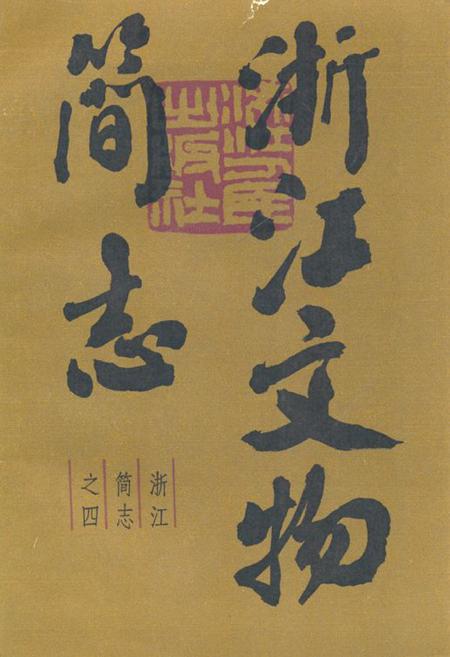 浙江文物
简志
浙江人民
出版社
浙江
简志
之四